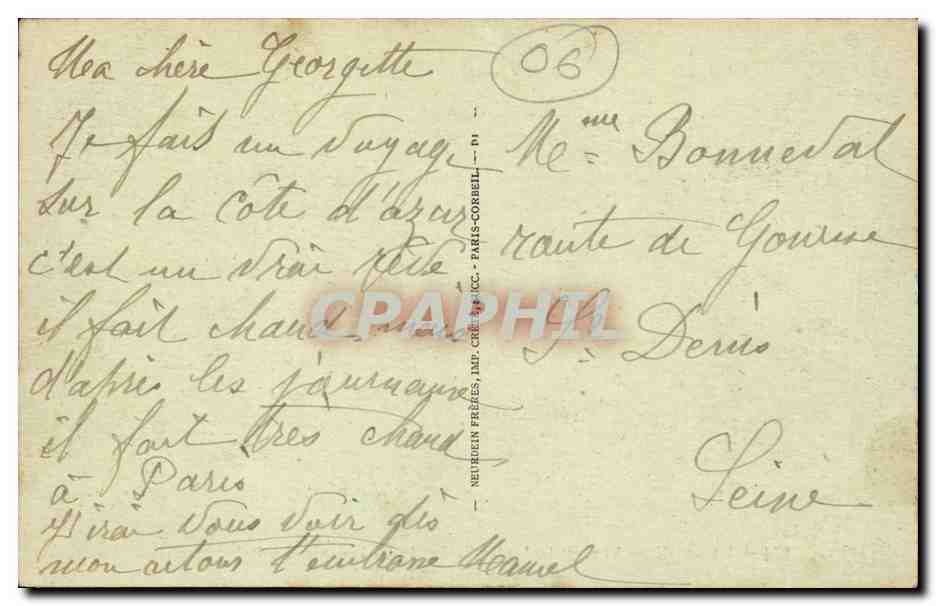 Ma chère Georgette
Je fais un voyage
sur la côte d'azur
c'est un vrai rêve
il fait chaud mais
d'après les journaux
il fait très chaud
à Paris
J'irai vous voir dès
mon
06
Mme Bonneval
route de Gonesse
St Denis
Seine
NEURDEIN FRÈRES, IMP. CRÉTÉ, SUCC. - PARIS-CORBEIL.
CPAPHIL